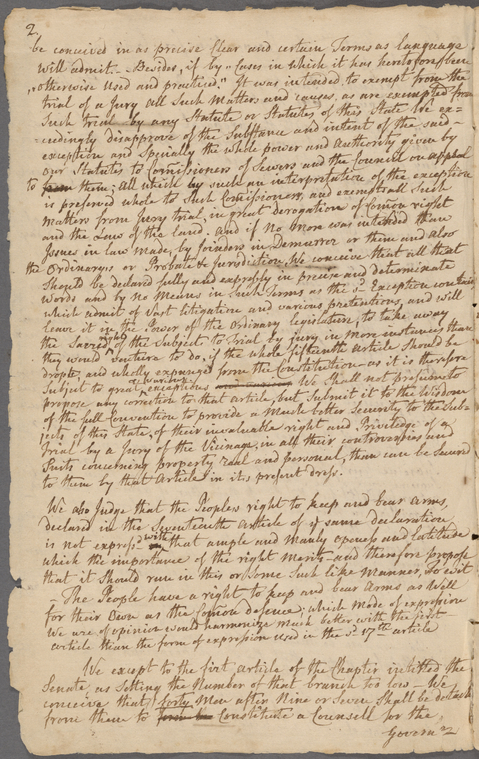 2
be conceived in as precise clear and certain Terms as language
will admit. – Besides, if by "Cases in which it has heretofore been
"otherwise used and practiced." It was intended to exempt from the
trial of a Jury all Such Matters and causes, as are exempted from
Such trial by any Statute or Statutes of this State We ex-
-ceedingly disapprove of the Substance and intent of the said
exception and Specially the whole power and Authority given by
our Statutes to Comissioners of Sewers and the Council on appeal
to from them; all which by such an interpretation of the exception
is preserved whole to Such Comissioners, and exempts all Such
matters from Jury trial, in great derogation of Comon right
and the Law of the land. And if no More was intended than
Issues in law made by joinders in Demurror or them and also
the Ordinarys or Probate Jurisdiction We conceive that all that
Should be declared fully and expressly in precise and determinate
words and by no Means in Such Terms as the sd. Exception contains
which admit of Vast litigation and various pretentions, and will
leave it in the Power of the Ordinary legislature, to take away
the Sacred right of the Subject to Trial by jury in more instances than
they would Venture to do, if the whole fifteenth Article Should be
dropt, and wholly expunged from the Constitution as it is therefore
Subject to great & various exceptions We Shall not presume to
propose any correction to that article, but Submit it to the Wisdom
of the full Convention to provide a Much better Security to the Sub-
jects of this State, of their invaluable right and Priviledge of a
Trial by a Jury of the Vicinage, in all their controversies and
Suits concerning property real and personal, than can be Secured
to them by that Article in its present dress.
We also Judge that the Peoples right to keep and bear Arms,
declared in the Seventeenth Article of ye same declaration
is not expressd with that ample and Manly openess and latitude
which the importance of the right Merits, and therefore propose
that it Should run in this or Some Such like Manner, to wit
The People have a right to keep and bear Arms as Well
for their Own as the Comon defence; which Mode of expression
We are of opinion would harmonize Much better with the first
article than the form of expression used in the sd. 17th article
We except to the first Article of the Chapter intitled the
Senate, as Setting the Number of that branch too low – We
conceive that forty Men after Nine or Seven Shall be detach
from them to Constitute a Counsell for the
Govern